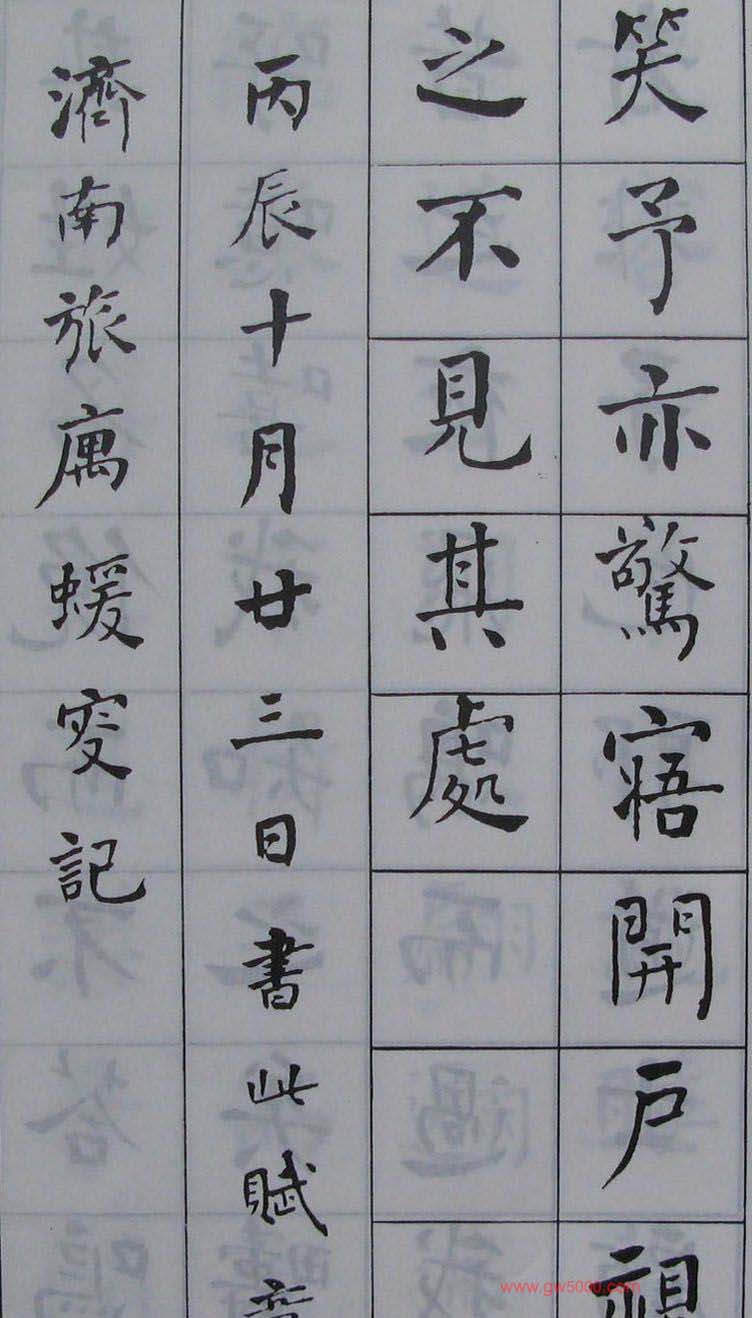 笑予亦驚寤開戶視
之不見其處
丙辰十月廿三日書此賦竟
濟南旅寓蝯叟記
www.gw5000.com